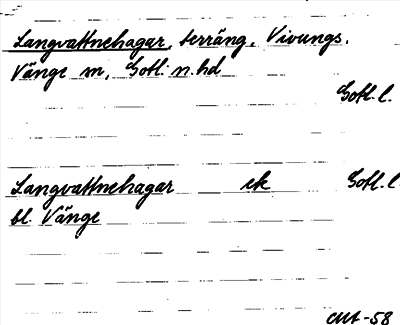 Langvattnehagar, terräng, Vivungs,
Vänge sn, Gotl. n. hd
Gotl. l.
Langvattnehagar ek Gotl. l.
bl. Vänge
-58